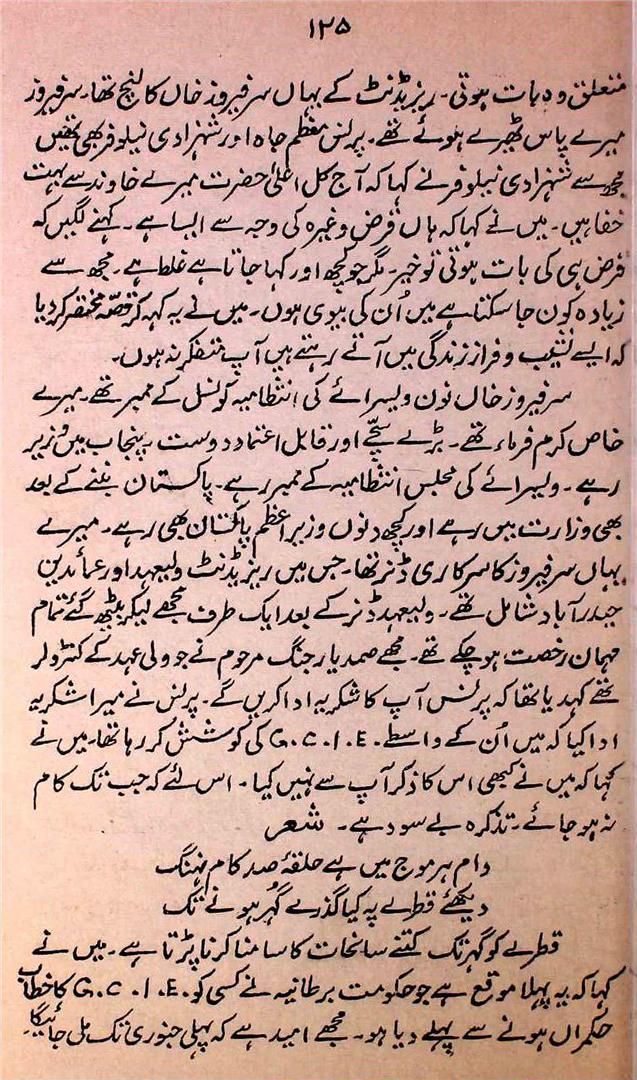 ۱۲۵
متعلق وہ بات ہوتی۔ ریزیڈنٹ کے یہاں سر فیروز خاں کا لنچ تھا۔ سر فیروز
میرے پاس ٹھیرے ہوئے تھے۔ پرنس معظم جاہ اور شہزادی نیلوفر بھی تھیں
مجھ سے شہزادی نیلوفر نے کہا کہ آج کل اعلیٰ حضرت میرے خاوند سے بہت
خفا ہیں۔ میں نے کہا کہ ہاں قرض وغیرہ کی وجہ سے ایسا ہے۔ کہنے لگیں کہ
قرض ہی کی بات ہوتی تو خیر۔ مگر جو کچھ اور کہا جاتا ہے غلط ہے۔ مجھ سے
زیادہ کون جا سکتا ہے میں اُن کی بیوی ہوں۔ میں نے یہ کہہ کر قصّہ مختصر کر دیا
کہ ایسے نشیب و فراز زندگی میں آتے رہتے ہیں آپ متفکر نہ ہوں۔
سر فیروز خاں نون ویسرائے کی انتظامیہ کونسل کے ممبر تھے۔ میرے
خاص کرم فرماء تھے۔ بڑے سچّے اور قابل اعتماد دوست۔ پنجاب میں وزیر
رہے۔ ویسرائے کی مجلس انتظامیہ کے ممبر رہے۔ پاکستان بننے کے بعد
بھی وزارت میں رہے اور کچھ دنوں وزیر اعظم پاکستان بھی رہے۔ میرے
یہاں سر فیروز کا سرکاری ڈنر تھا۔ جس میں ریزیڈنٹ ولیعہد اور عمائدین
حیدرآباد شامل تھے۔ ولیعہد ڈنر کے بعد ایک طرف مجھے لیکر بیٹھ گئے تمام
مہمان رخصت ہو چکے تھے۔ مجھے صمد یار جنگ مرحوم نے جو ولی عہد کے کنٹرولر
تھے کہدیا تھا کہ پرنس آپ کا شکریہ ادا کریں گے۔ پرنس نے میرا شکریہ
ادا کیا کہ میں اُن کے واسطے G.C.I.E. کی کوشش کر رہا تھا۔ میں نے
کہا کہ میں نے کبھی اس کا ذکر آپ سے نہیں کیا۔ اس لئے کہ جب تک کام
نہ ہو جائے۔ تذکرہ بے سود ہے۔ شعر
دام ہر موج میں ہے حلقۂ صد کام نہنگ
دیکھئے قطرے پہ کیا گذرے گُہر ہونے تک
قطرے کو گہر تک کتنے سانحات کا سامنا کرنا پڑتا ہے۔ میں نے
کہا کہ یہ پہلا موقع ہے جو حکومت برطانیہ نے کسی کو G.C.I.E. کا خطاب
حکمراں ہونے سے پہلے دیا ہو۔ مجھے امید ہے کہ پہلی جنوری تک مل جائیگا۔